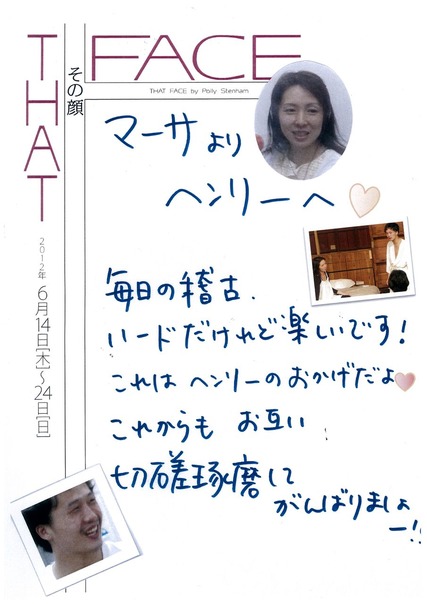 THAT FACE
その顔
THAT FACE by Polly Stenham
2012年6月14日[木]〜24日[日]
マーサより
ヘンリーへ
毎日の稽古、
ハードだけれど楽しいです!
これはヘンリーのおかげだよ
これからも お互い
切磋琢磨して
がんばりましょ
ー!!